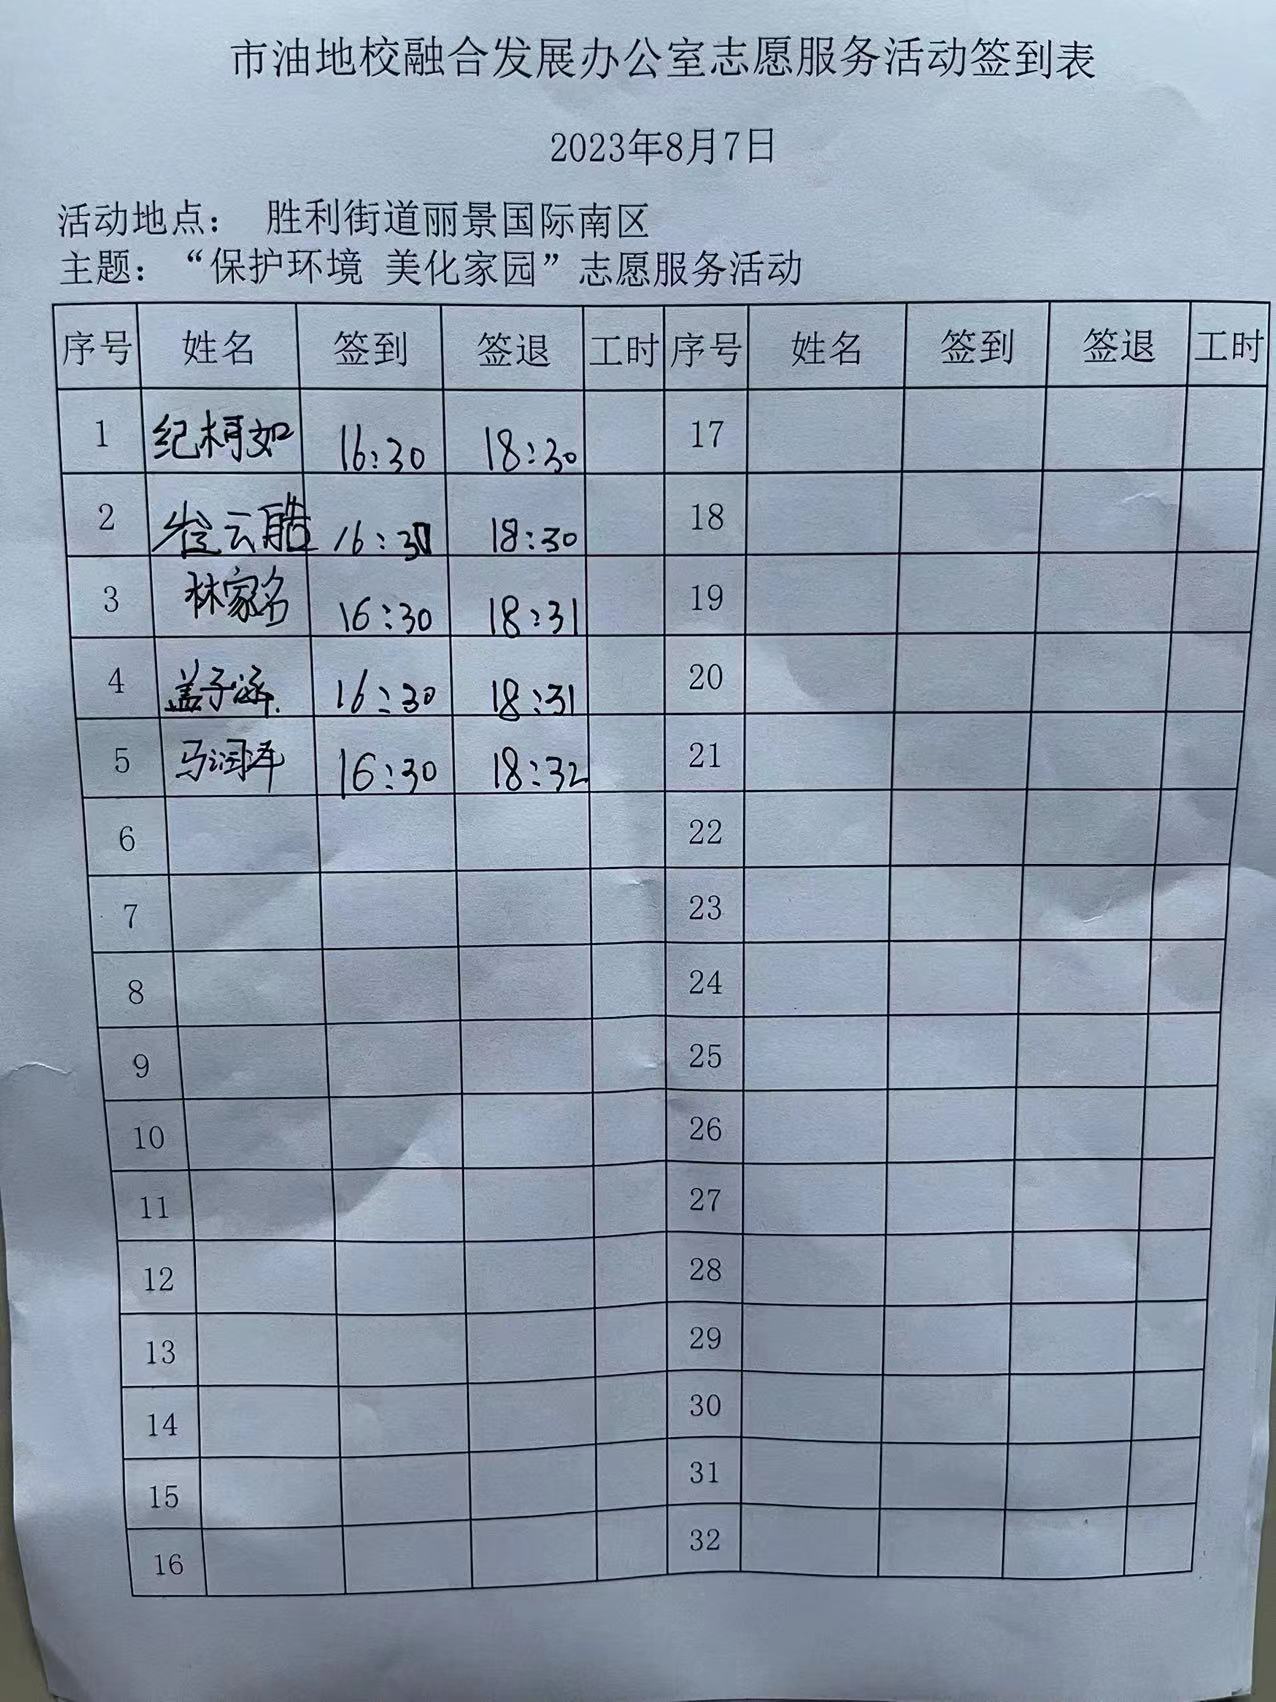 市油地校融合发展办公室志愿服务活动签到表
2023年8月7日
活动地点： 胜利街道丽景国际南区
主题：“保护环境 美化家园”志愿服务活动
序号 姓名 签到 签退 工时 序号 姓名 签到 签退 工时
1 纪柯如 16:30 18:30 17
2 崔云皓 16:30 18:30 18
3 林家名 16:30 18:31 19
4 盖子涵 16:30 18:31 20
5 马润泽 16:30 18:32 21
6 22
7 23
8 24
9 25
10 26
11 27
12 28
13 29
14 30
15 31
16 32